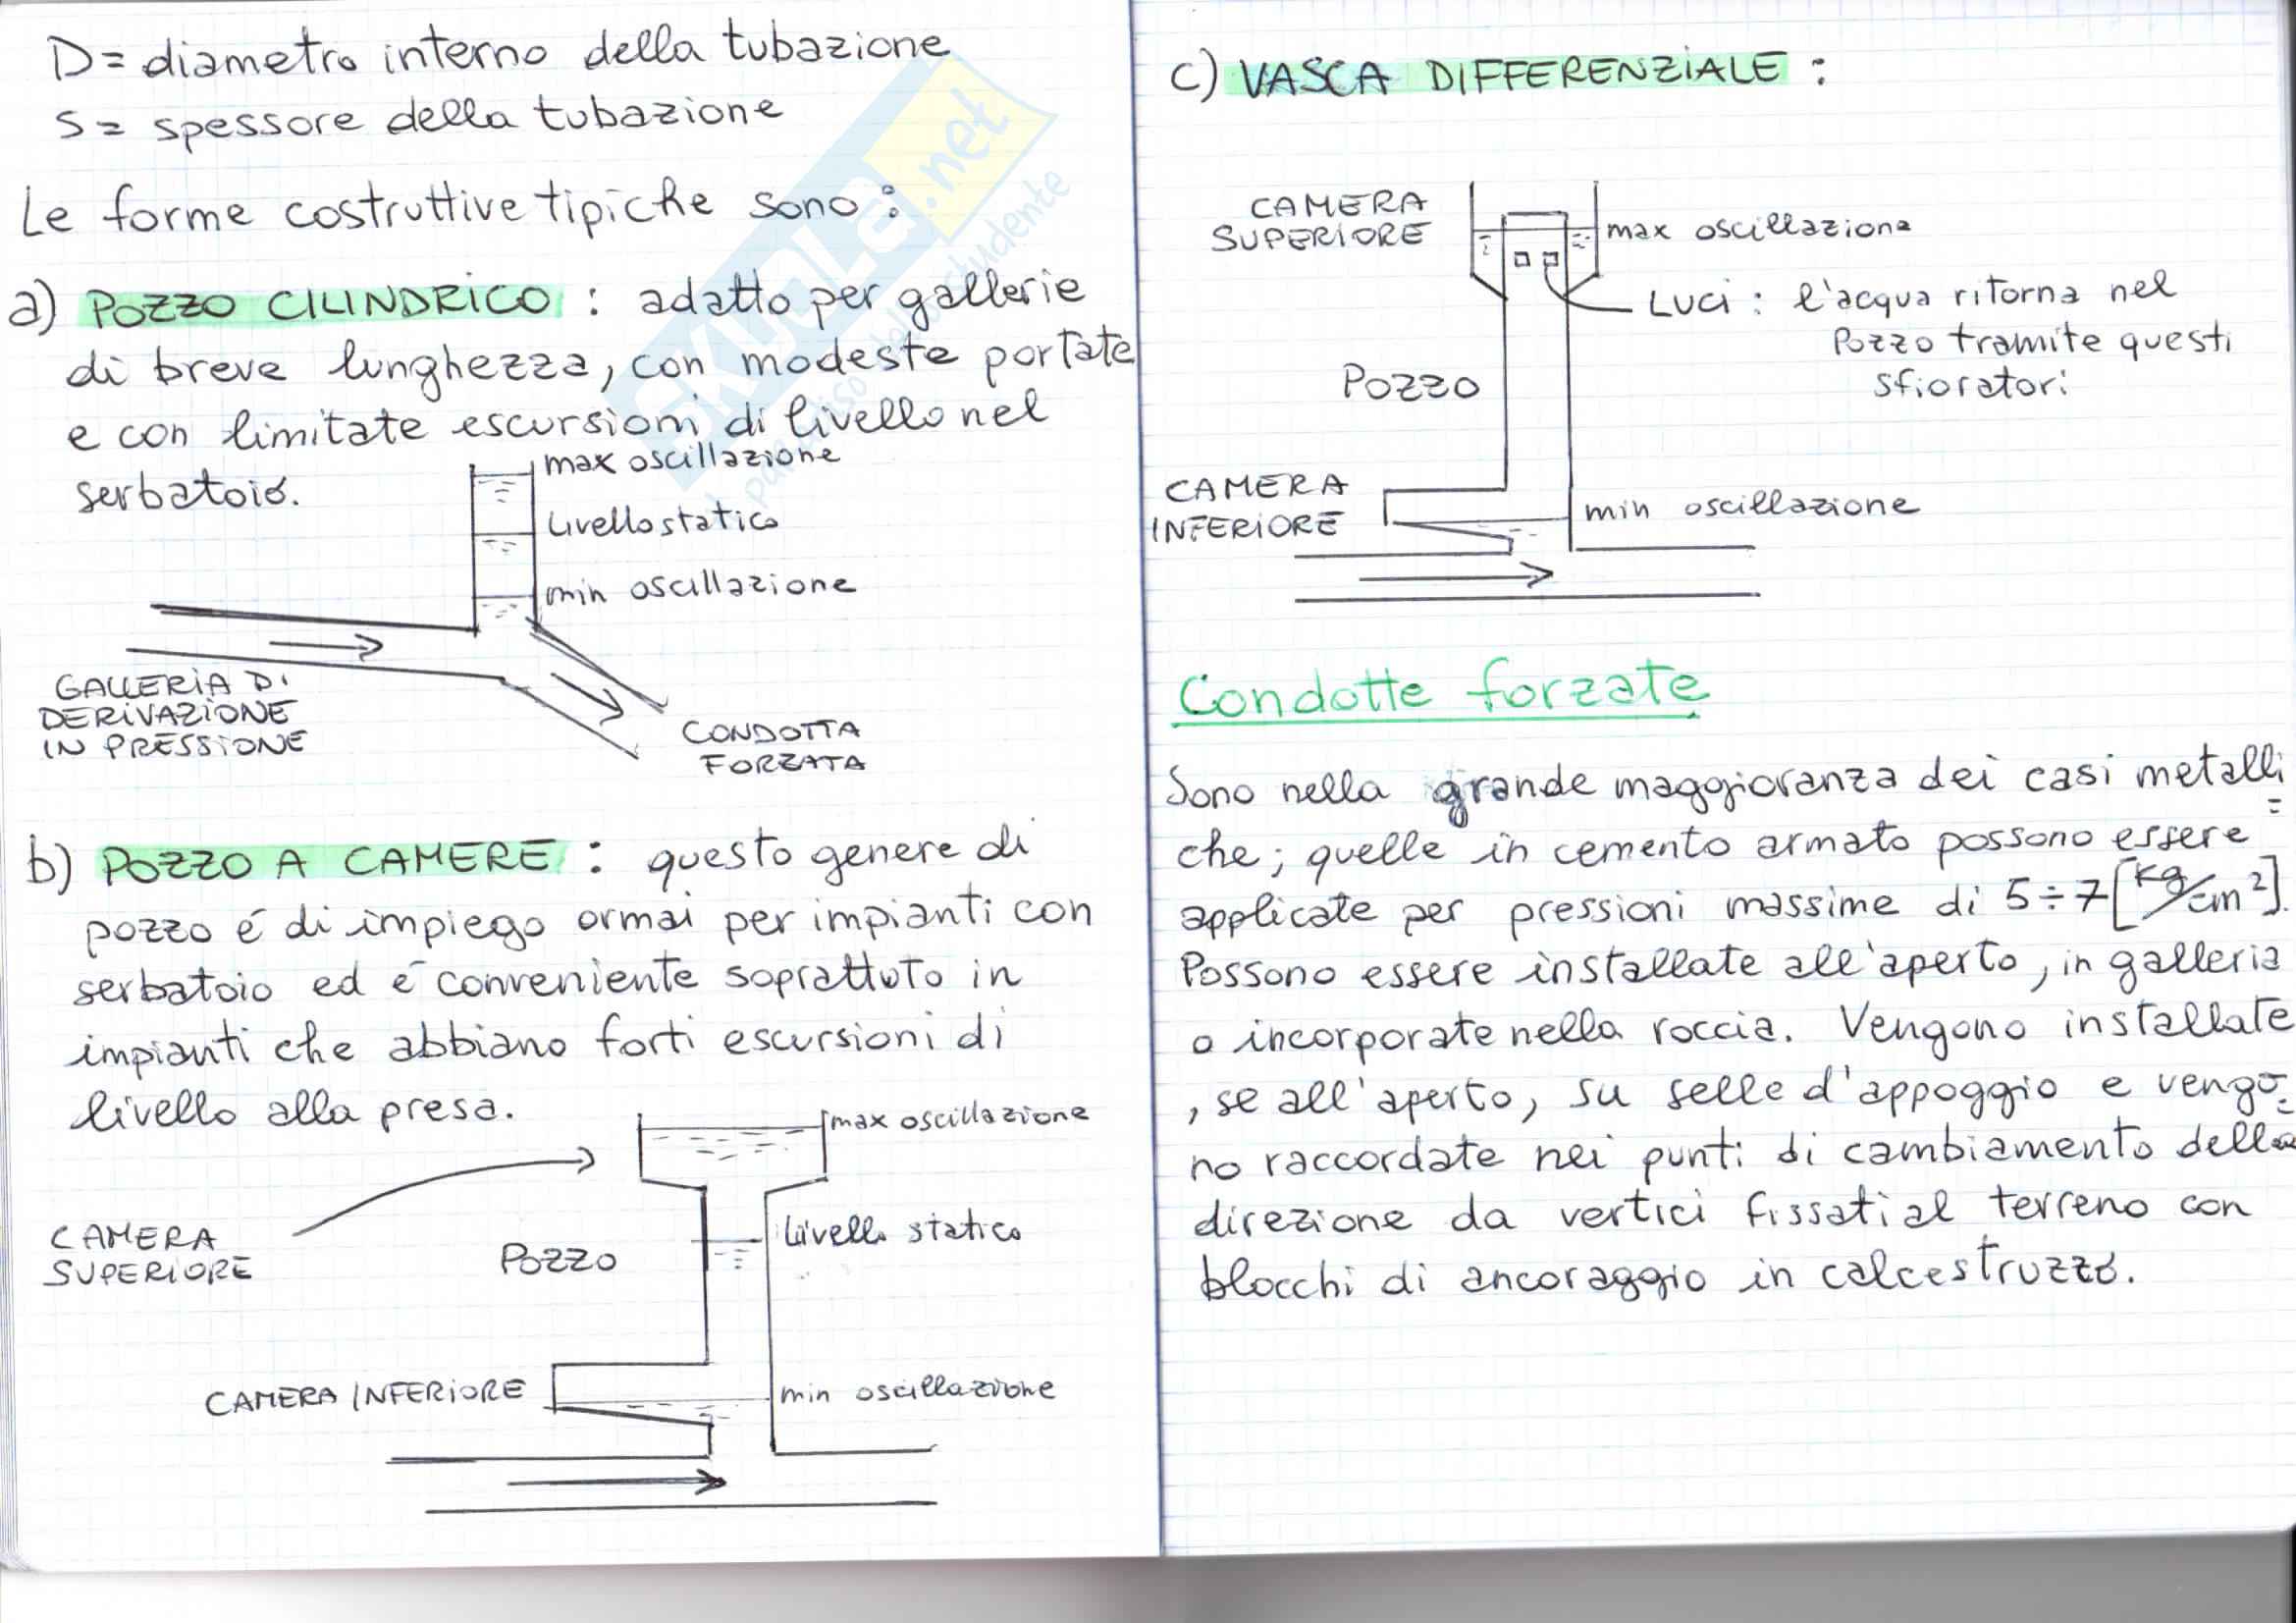 D= diametro interno della tubazione
S= spessore della tubazione
Le forme costruttive tipiche sono :
a) POZZO CILINDRICO : adatto per gallerie
di breve lunghezza, con modeste portate
e con limitate escursioni di livello nel
serbatoio.
max oscillazione
Livello statico
min oscillazione
GALLERIA DI
DERIVAZIONE
IN PRESSIONE
CONDOTTA
FORZATA
b) POZZO A CAMERE : questo genere di
pozzo é di impiego ormai per impianti con
serbatoio ed é conveniente soprattuto in
impianti che abbiano forti escursioni di
livello alla presa.
max oscillazione
CAMERA
SUPERIORE
POZZO
Livello statico
CAMERA INFERIORE
min oscillazione
c) VASCA DIFFERENZIALE :
CAMERA
SUPERIORE
max oscillazione
LUCI : l'acqua ritorna nel
Pozzo tramite questi
sfioratori
POZZO
CAMERA
INFERIORE
min oscillazione
Condotte forzate
Sono nella grande maggioranza dei casi metalli=
che; quelle in cemento armato possono essere
applicate per pressioni massime di 5÷7 [kg/cm²].
Possono essere installate all'aperto, in galleria
o incorporate nella roccia. Vengono installate
, se all'aperto, su selle d'appoggio e vengo=
no raccordate nei punti di cambiamento della
direzione da vertici fissati al terreno con
blocchi di ancoraggio in calcestruzzo.
SKUOLA.net